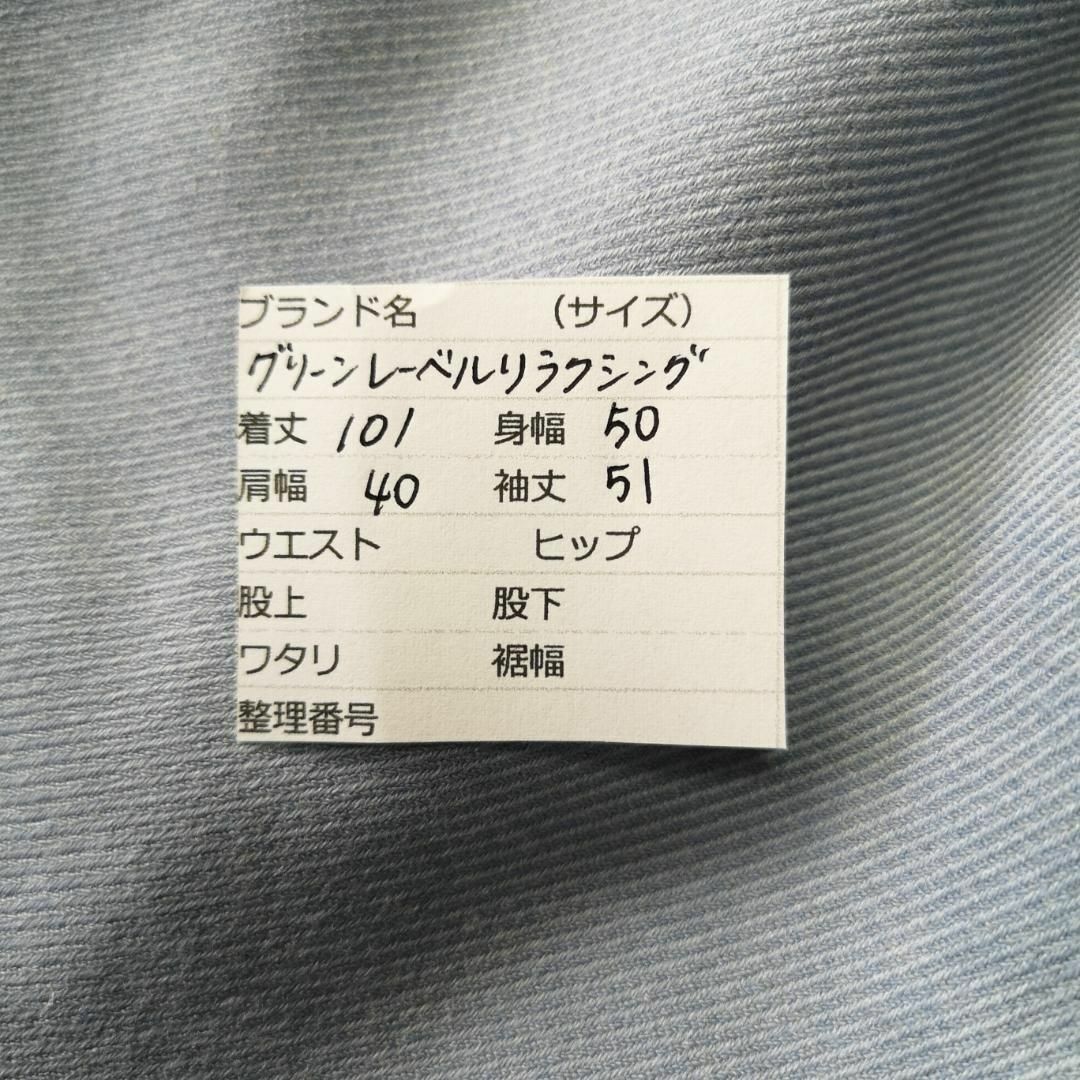 ブランド名 （サイズ）
グリーンレーベルリラクシング
着丈 101 身幅 50
肩幅 40 袖丈 51
ウエスト ヒップ
股上 股下
ワタリ 裾幅
整理番号